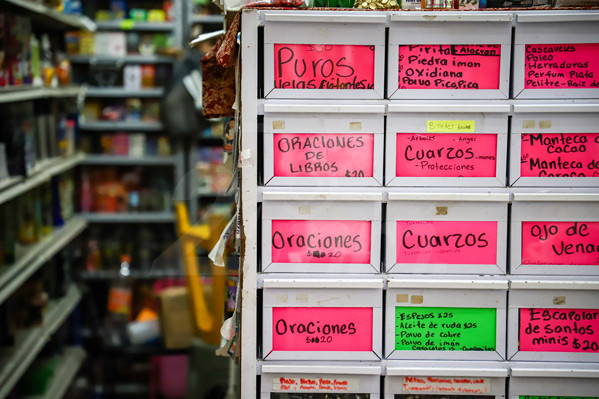 Puros $20
Velas Flotantes
Pirita
Alacran
Piedra iman
Oxidiana
Polvo Pica Pica
Cascaveles
Polvo
Herraduras
Perfum Plata
Pelitre-Raiz
ORACIONES
DE
LIBROS $20
- Arboles - Angel
Cuarzos -manos
- Protecciones
- Manteca de
Cacao
Manteca de
Oraciones
$20
Cuarzos
OJO DE
VENAD
Oraciones
$20
- ESPEJOS $25
- Aceite de ruda $25
- Polvo de cobre
- Polvo de imán
ESCAPOLAR
de santos
minis $20